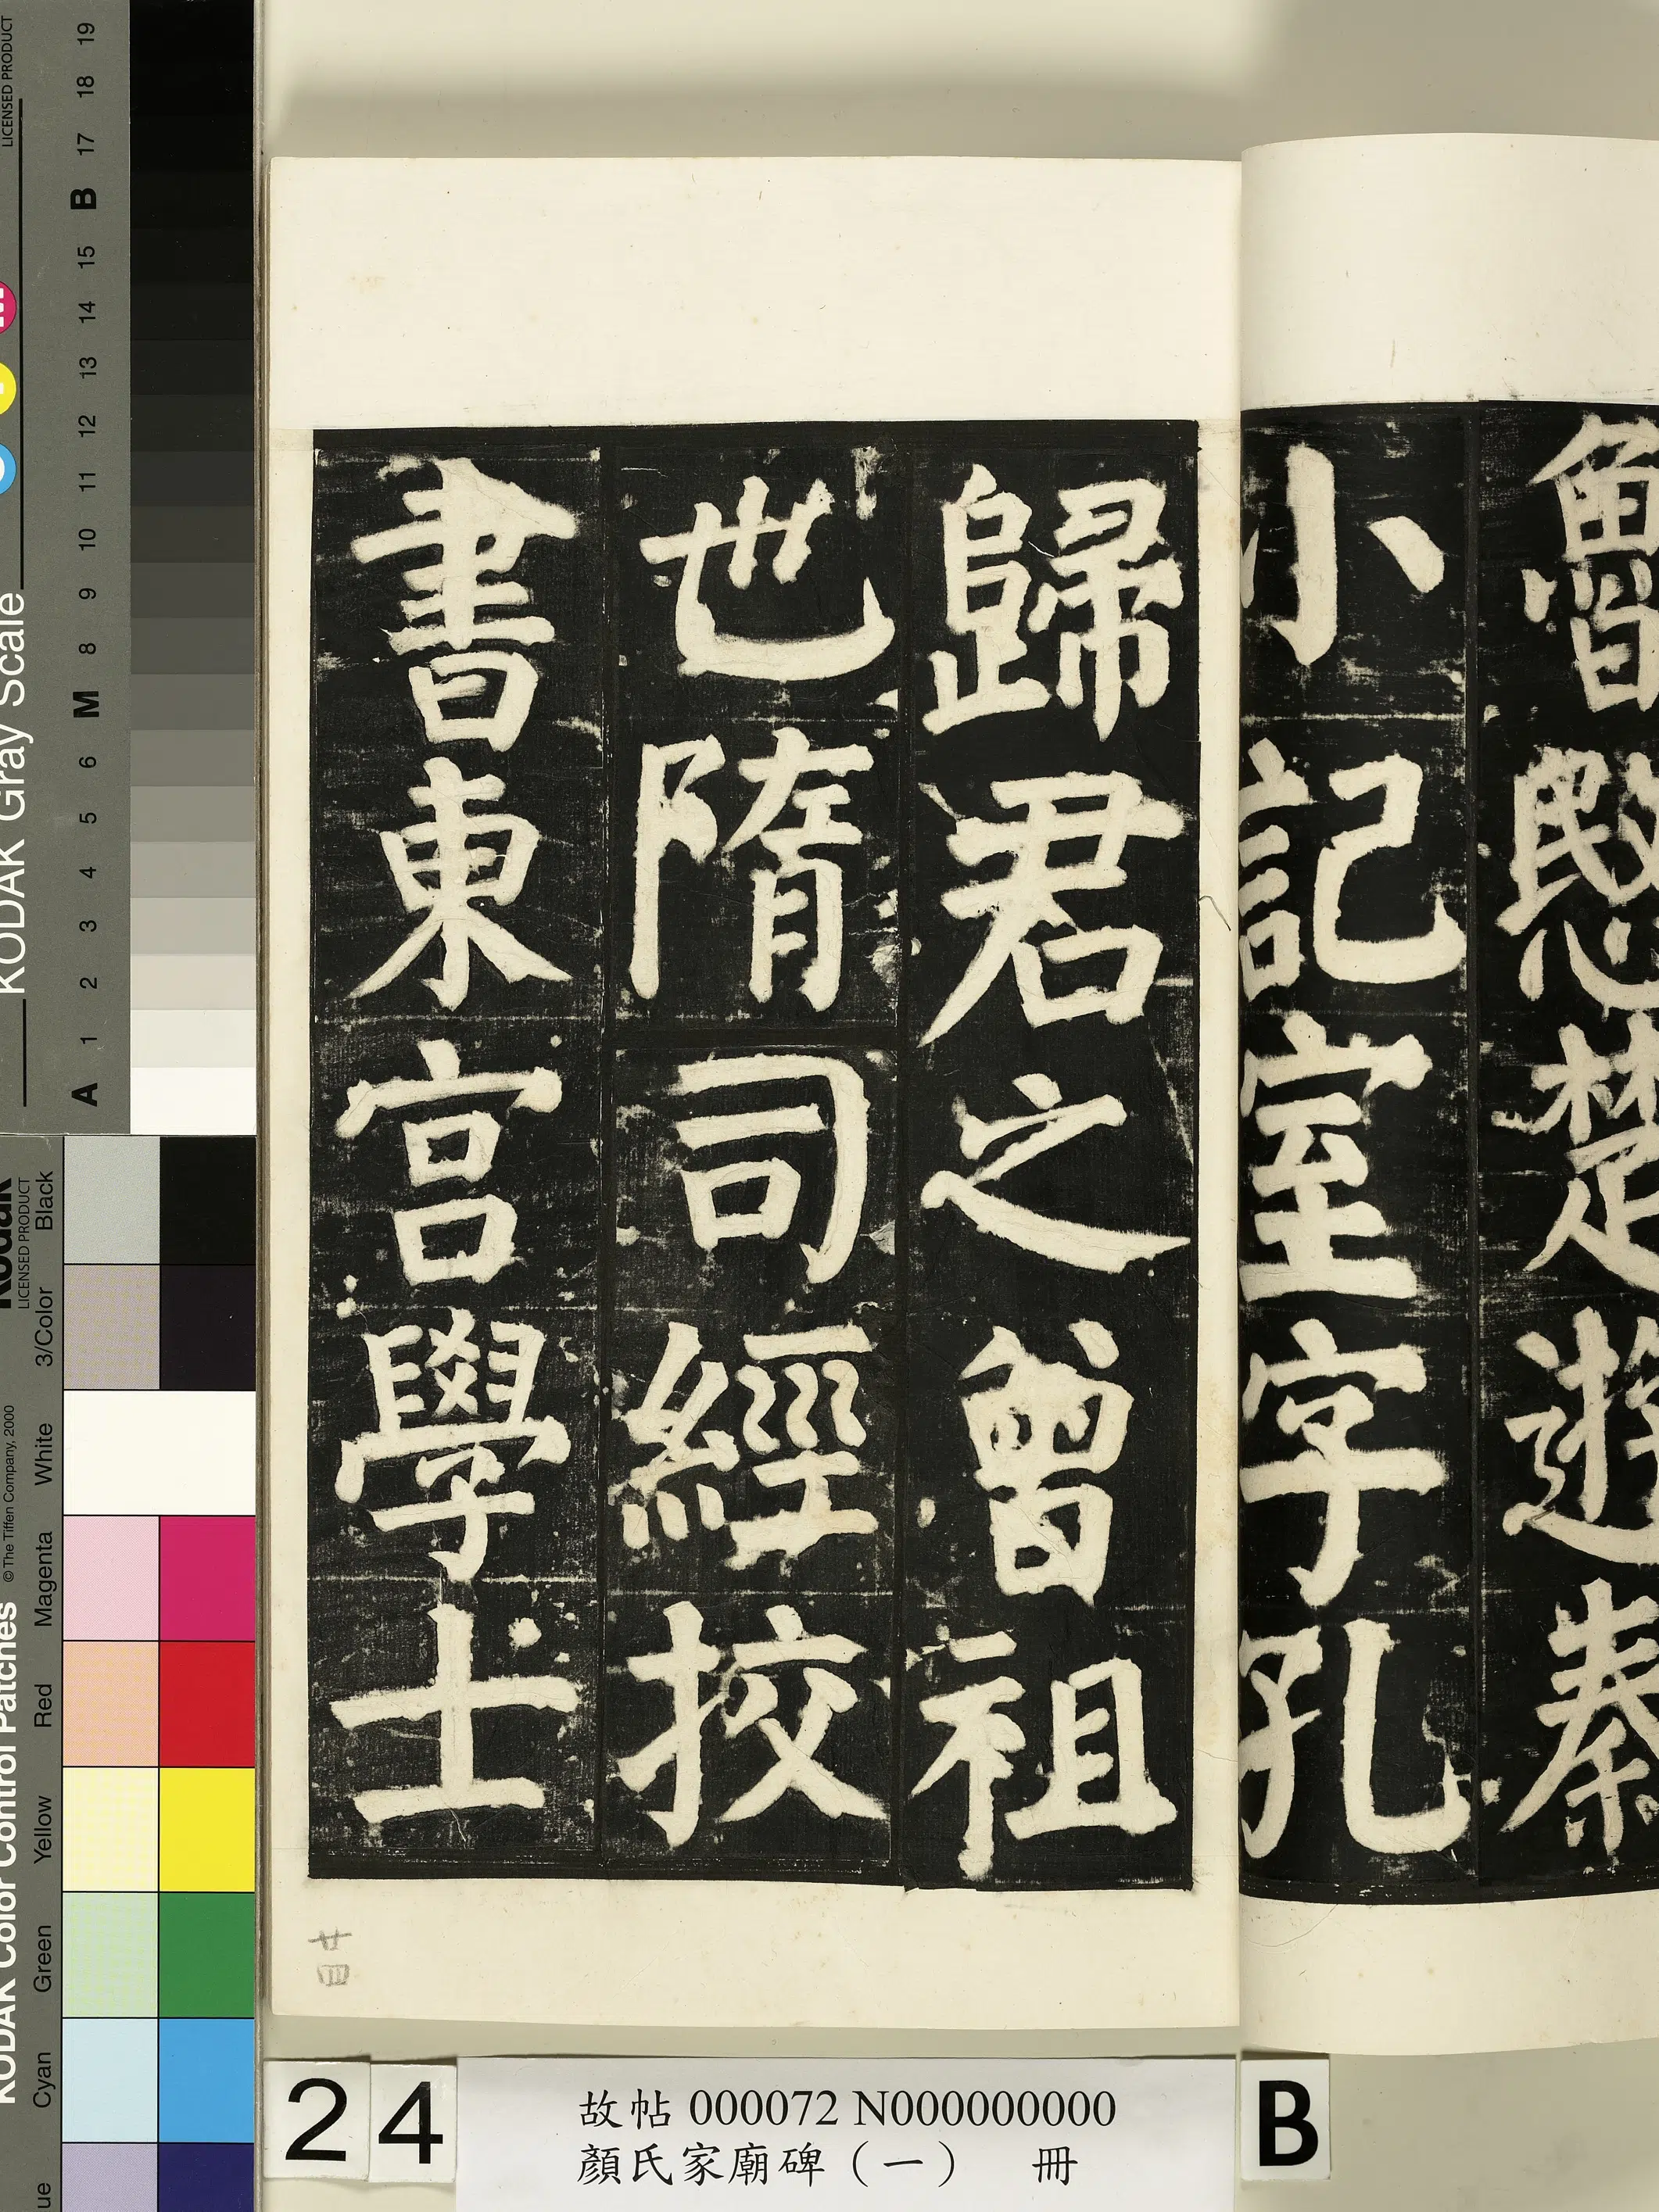 魯愍楚遊秦
小記室字孔
歸君之曾祖
世隋司經挍
書東宮學士
24
故帖 000072 N000000000
顏氏家廟碑（一） 冊
B
KODAK Gray Scale
LICENSED PRODUCT
A 1 2 3 4 5 6 M 8 9 10 11 12 13 14 15 B 17 18 19
KODAK Color Control Patches
© The Tiffen Company, 2000
Kodak
LICENSED PRODUCT
Cyan Green Yellow Red Magenta White 3/Color Black